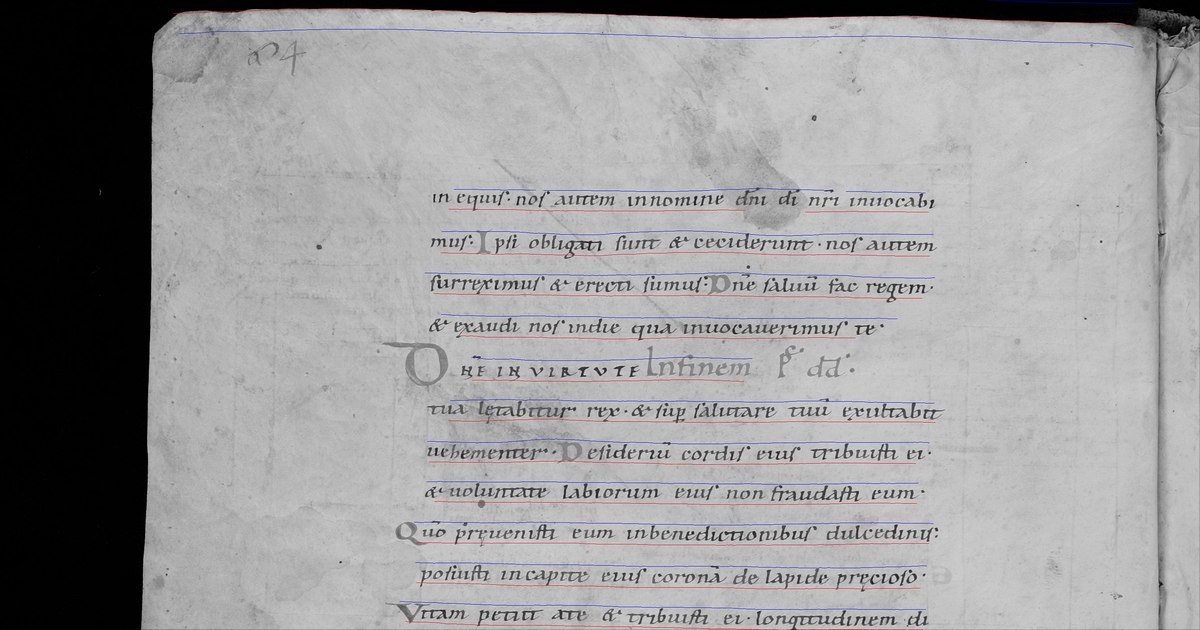 in equis· nos autem innomine dn̄i dī nr̄i inuocabi
mus· Ipsi obligati sunt & ceciderunt· nos autem
surreximus & erecti sumus· Dn̄e saluū fac regem·
& exaudi nos indie qua inuocauerimus te·
DN̄E IN VIRTVTE Infinem ps dd·
tua lętabitur rex· & sup̄ salutare tuū exultabit
uehementer· Desideriū cordis eius tribuisti ei·
& uoluntate labiorum eius non fraudasti eum·
Quō pręuenisti eum inbenedictionibus dulcedinis:
posuisti incapite eius coronā de lapide pręcioso·
Vitam petiit ate & tribuisti ei· longitudinem di